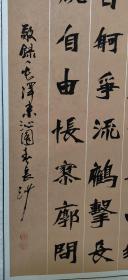 百舸爭流鷹擊長
自由悵寥廓問
敬錄毛澤東沁園春長沙